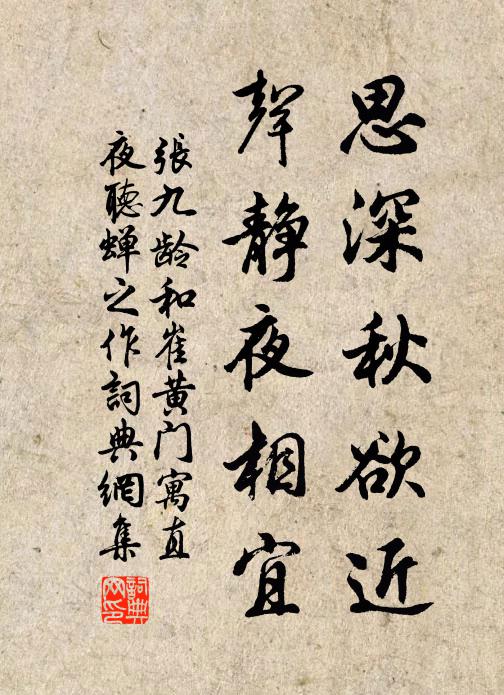 思深秋欲近
聲静夜相宜
張九龄和崔黄门寓直
夜聽蝉之作詞典網集
詞典网印